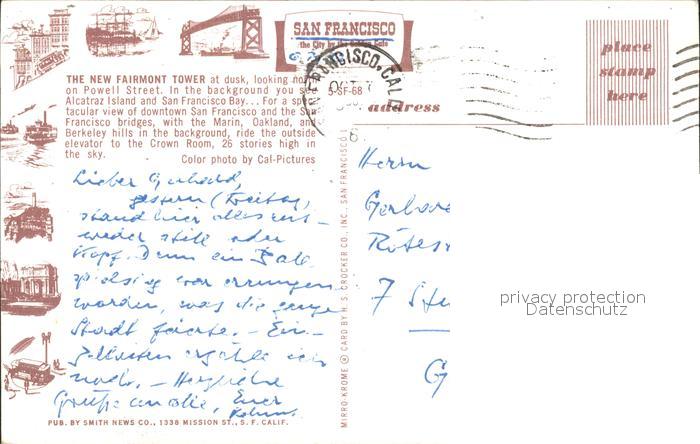 SAN FRANCISCO
the City by the Golden Gate
place
stamp
here
SAN FRANCISCO, CALIF.
OCT 7
5-SF-68
address
THE NEW FAIRMONT TOWER at dusk, looking no
on Powell Street. In the background you see
Alcatraz Island and San Francisco Bay... For a spec-
tacular view of downtown San Francisco and the San
Francisco bridges, with the Marin, Oakland, and
Berkeley hills in the background, ride the outside
elevator to the Crown Room, 26 stories high in
the sky.
Color photo by Cal-Pictures
Lieber Gerhard,
gestern (Freitag)
stand hier alles ent-
weder still oder
Kopf. Denn ein Ball
spielsieg war errungen
worden, was die ganze
Stadt feierte. – Ein-
zelheiten erzähle ich
noch. – Herzliche
Grüße an alle, Euer
PUB. BY SMITH NEWS CO., 1338 MISSION ST., S. F. CALIF.
MIRRO-KROME ® CARD BY H. S. CROCKER CO., INC., SAN FRANCISCO 1,
Herrn
Gerhard
7 Stu
G
privacy protection
Datenschutz